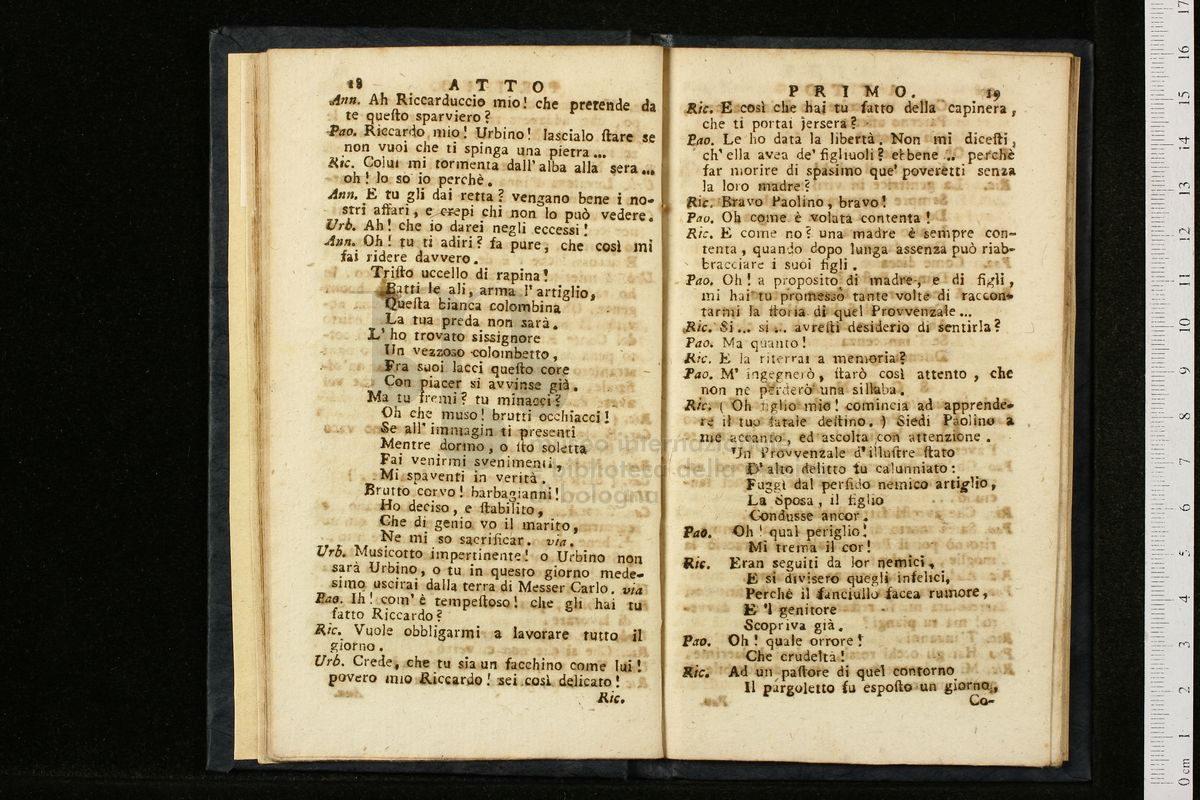 18 ATTO
Ann. Ah Riccarduccio mio! che pretende da
te queſto sparviero?
Pao. Riccardo mio! Urbino! lascialo ſtare se
non vuoi che ti spinga una pietra...
Ric. Colui mi tormenta dall'alba alla sera...
oh! lo so io perchè.
Ann. E tu gli dai retta? vengano bene i no-
stri affari, e crepi chi non lo può vedere.
Urb. Ah! che io darei negli eccessi!
Ann. Oh! tu ti adiri? fa pure, che così mi
fai ridere davvero.
Triſto uccello di rapina!
Batti le ali, arma l'artiglio,
Queſta bianca colombina
La tua preda non sarà.
L'ho trovato sissignore
Un vezzoso colombetto,
Fra suoi lacci queſto core
Con piacer si avvinse già.
Ma tu fremi? tu minacci?
Oh che muso! brutti occhiacci!
Se all'immagin ti presenti
Mentre dormo, o ſto soletta
Fai venirmi svenimenti,
Mi spaventi in verità.
Brutto corvo! barbagianni!
Ho deciso, e ſtabilito,
Che di genio vo il marito,
Ne mi so sacrificar. via.
Urb. Musicotto impertinente! o Urbino non
sarà Urbino, o tu in questo giorno mede-
simo uscirai dalla terra di Messer Carlo. via
Pao. Ih! com'è tempeſtoso! che gli hai tu
fatto Riccardo?
Ric. Vuole obbligarmi a lavorare tutto il
giorno.
Urb. Crede, che tu sia un facchino come lui!
povero mio Riccardo! sei così delicato!
Ric.
PRIMO. 19
Ric. E così che hai tu fatto della capinera,
che ti portai jersera?
Pao. Le ho data la libertà. Non mi diceſti,
ch'ella avea de' figliuoli? ebbene .. perchè
far morire di spasimo que' poveretti senza
la loro madre?
Ric. Bravo Paolino, bravo!
Pao. Oh come è volata contenta!
Ric. E come no? una madre è sempre con-
tenta, quando dopo lunga assenza può riab-
bracciare i suoi figli.
Pao. Oh! a proposito di madre, e di figli,
mi hai tu promesso tante volte di raccon-
tarmi la ſtoria di quel Provvenzale...
Ric. Si... si... avreſti desiderio di sentirla?
Pao. Ma quanto!
Ric. E la riterrai a memoria?
Pao. M'ingegnerò, ſtarò così attento, che
non ne perderò una sillaba.
Ric. (Oh figlio mio! comincia ad apprende-
re il tuo fatale deſtino.) Siedi Paolino a
me accanto, ed ascolta con attenzione.
Un Provvenzale d'illuſtre ſtato
D'alto delitto fu calunniato:
Fuggì dal perfido nemico artiglio,
La Sposa, il figlio
Condusse ancor.
Pao. Oh! qual periglio!
Mi trema il cor!
Ric. Eran seguiti da lor nemici,
E si divisero quegli infelici,
Perchè il fanciullo facea rumore,
E 'l genitore
Scopriva già.
Pao. Oh! quale orrore!
Che crudeltà!
Ric. Ad un paſtore di quel contorno
Il pargoletto fu espoſto un giorno,
Co-
museo internazionale
e biblioteca della
bologna
0 cm 1 2 3 4 5 6 7 8 9 10 11 12 13 14 15 16 17